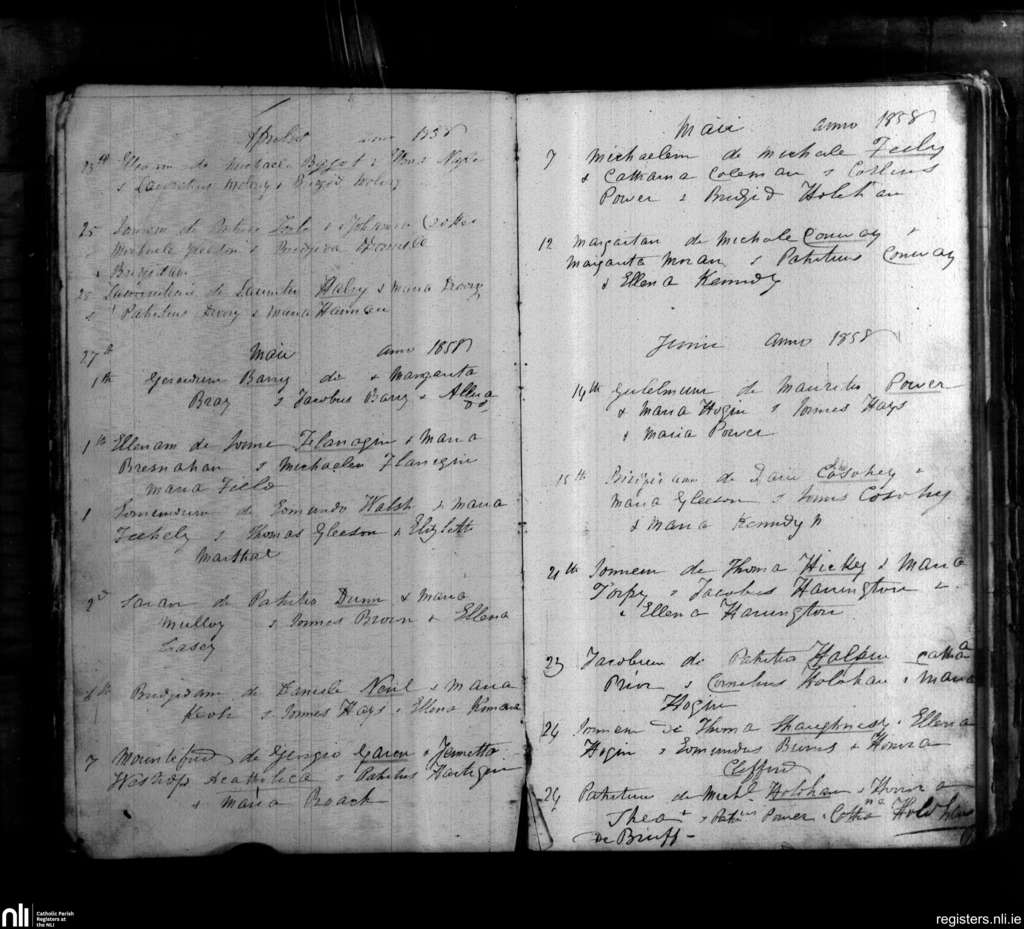 Aprilis anno 1858
23th de Michaele Bagot & Ellena
& Laurentius & Brigid
25 Joannem de Patricio & Johanna
Michaele & Brigida
& Brigidam
25 de Laurentio Haly & Maria
& Patritius & Maria Hannan
27th Maii anno 1858
1th Gerardum Barry de & Margarita
Bray & Jacobus Barry & Allena
1th Ellenam de Jonne Flanagin & Maria
Bresnahan & Michaelem Flanegin
Maria Field
1 Edmundum de Edmundo Walsh & Maria
Feehely & Thomas Gleeson & Elizabeth
Marshal
2d Saram de Patritio Dunn & Maria
Mulloy & Jonnes Brown & Ellena
Casey
6th Bridgidam de Daniele Neil & Maria
& Jonnes Hays & Ellena Kinnara
7 de Georgio Garen & Jennetta
Westrop Acatholica & Patritius Hartigin
& Maria Roack
Maii anno 1858
7 Michaelem de Michale Feely
& Catharna Coleman & Corlius
Power & Bridgid Holohan
12 Margaritam de Michale Conway &
Margarita Moran & Patritius Conway
& Ellena Kennedy
Junii anno 1858
14th Gulielmum de Mauritio Power
& Maria Hogin & Jonnes Hays
& Maria Power
15th de Cosokey &
Maria Gleeson & Jonnes Cosokey
& Maria Kennedy
21th Jonnem de Thoma Hickey & Maria
Torpy & Jacobus Harrington &
& Ellena Harrington
23 Jacobum de Patritio Halpin Catha
Prior & Cornelius Holohan & Maria
Hogin
24 Jonnem de Thoma Shaughnesy & Ellena
Hogin & Edmundus Burns & Honora
Clifford
24 Patritium de Michl Holohan & Honora
Shea & Patritius Power & Holohan
De Bruff
nli Catholic Parish
Registers at
the NLI
registers.nli.ie